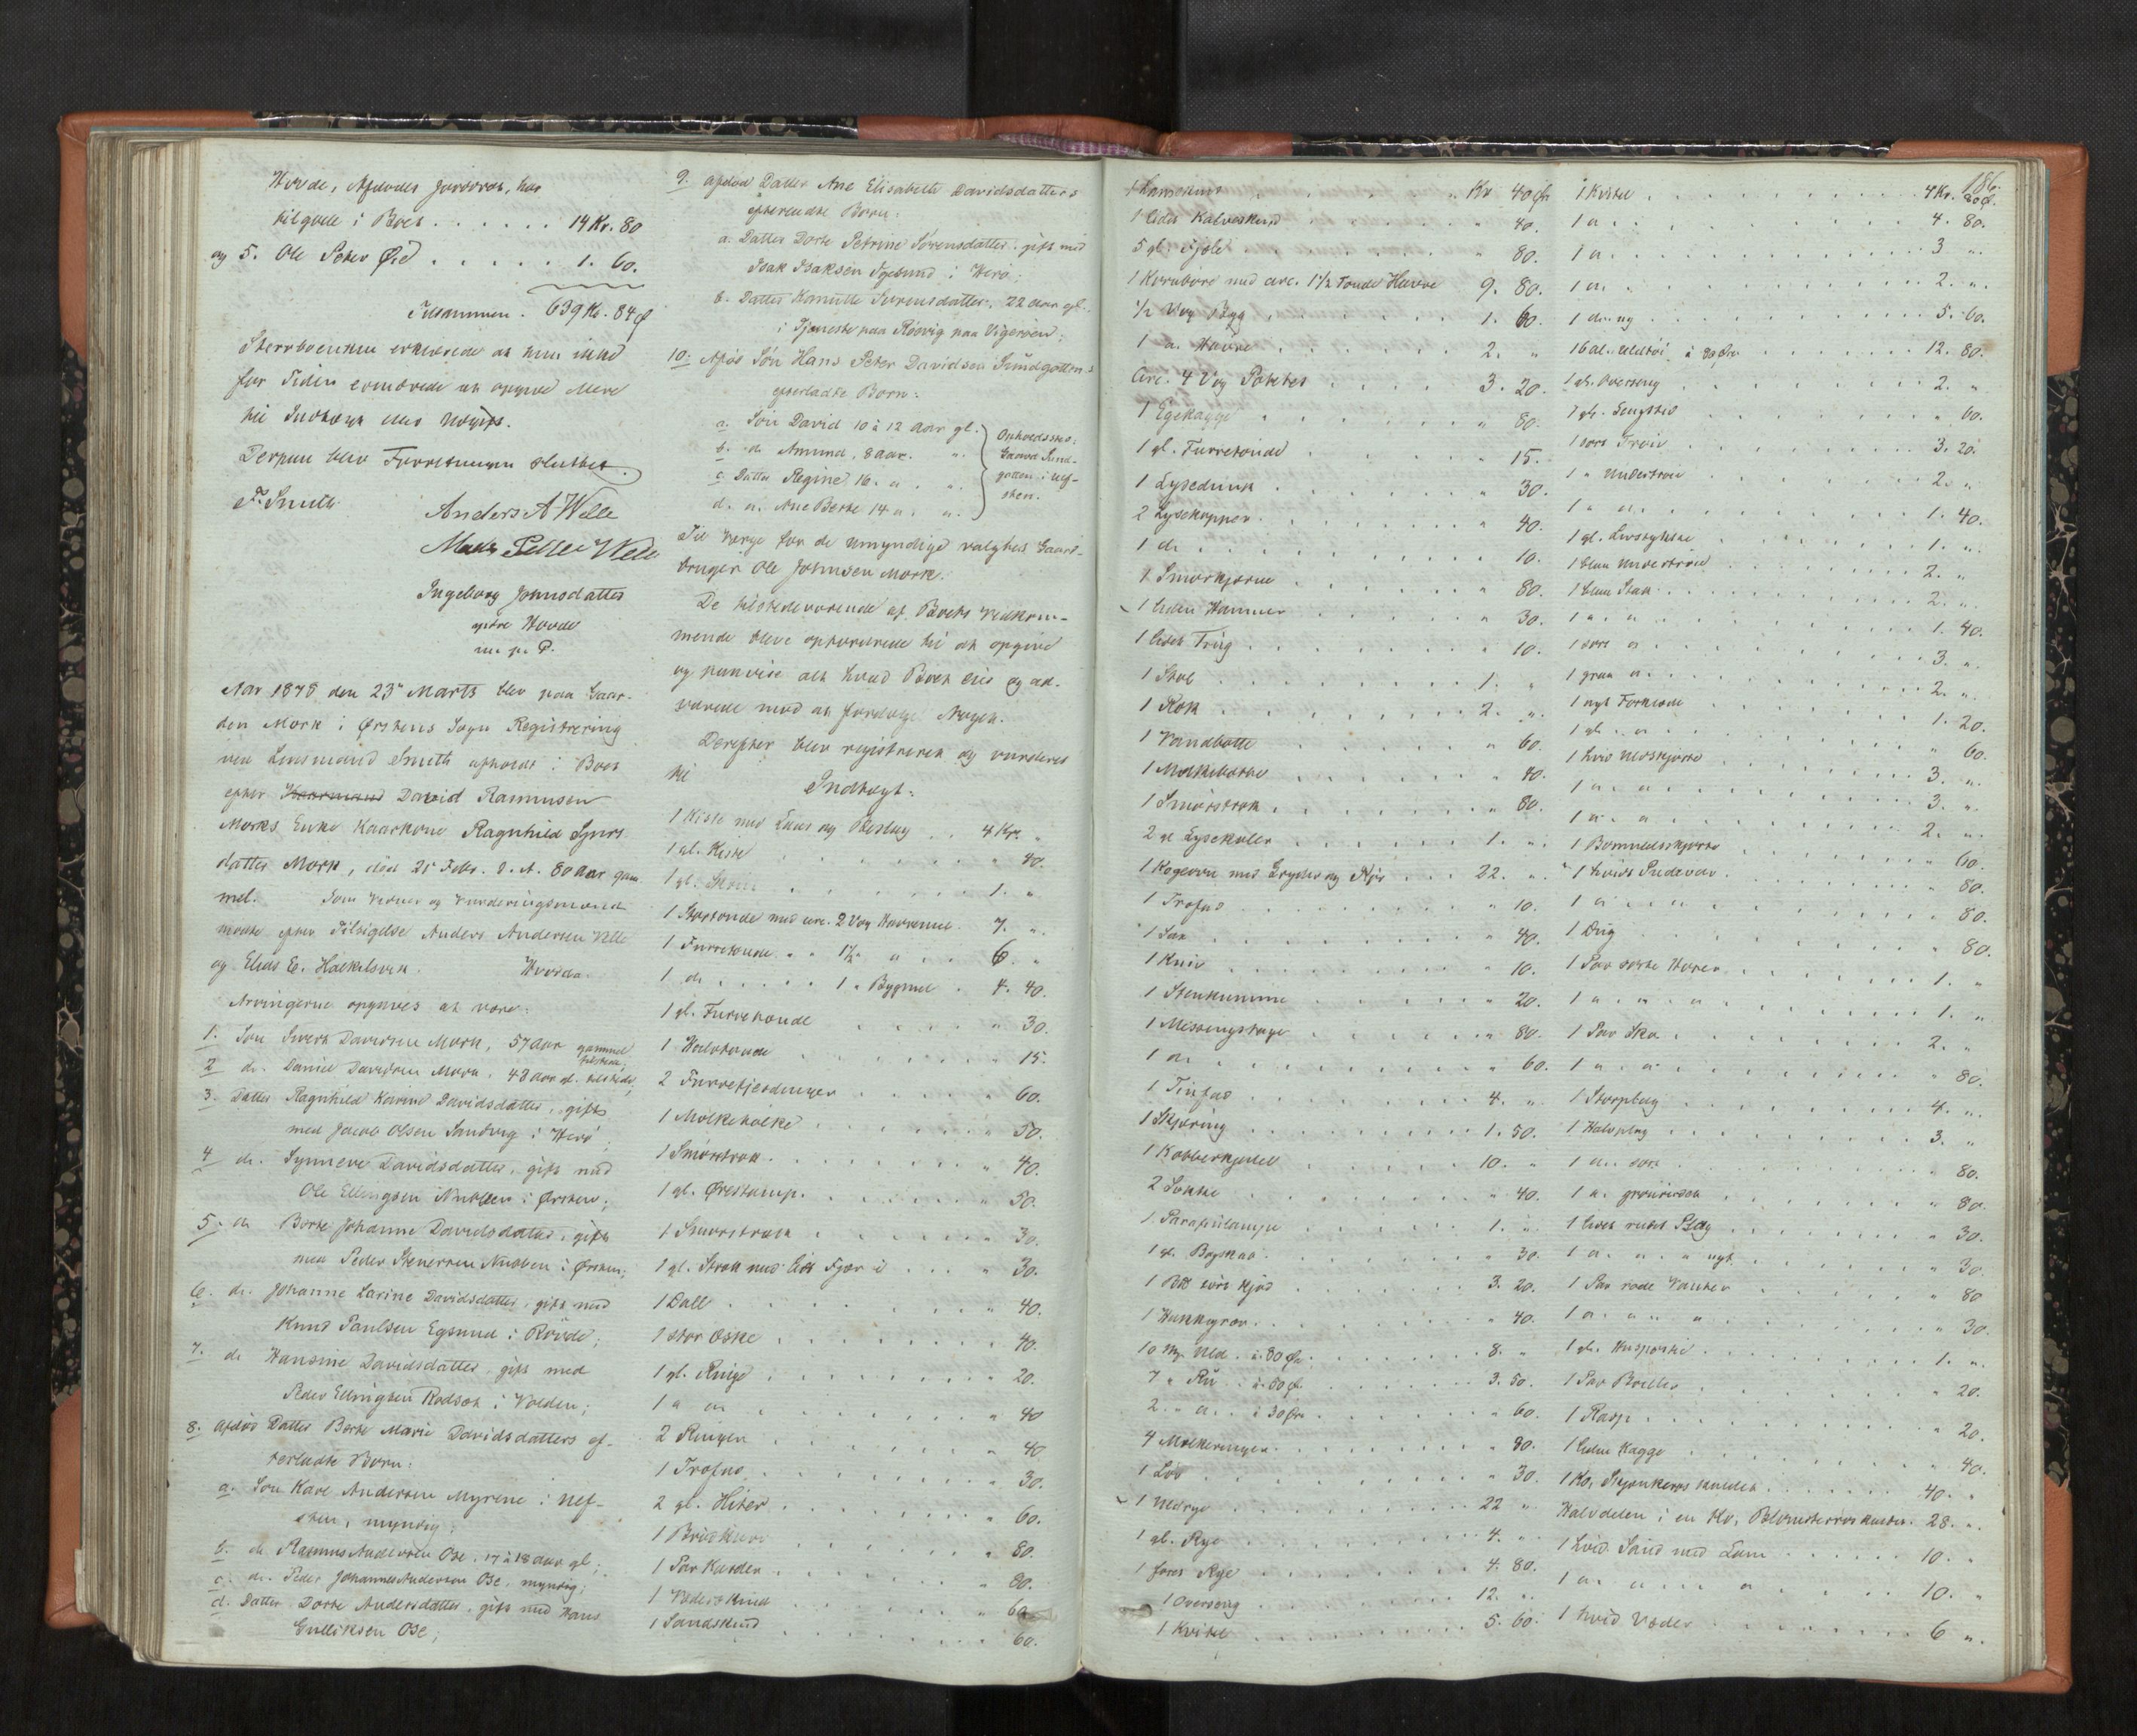 Hovde, Afdødes Jorddrot, har
tilgode i Boet . . . . . . 14 Kr. 80
og 5. Ole Peter Øie . . . . . 1. 60.
Tilsammen. 639 Kr. 84 Ø
Sterboenken erklærede at hun ikke
for Tiden erindrede at opgive Mere
til Indtægt eller Udgift.
Derpaa blev Forretningen sluttet.
F. Smith
Anders A Welle
Mads Welle
Ingeborg Jonsdatter
Hovde
m. p. P.
Aar 1878 den 23de Marts blev paa Gaar-
den Mork i Ørstens Sogn Registrering
ved Lensmand Smith afholdt i Boet
efter Kaarmand David Rasmusen
Morks Enke Kaarkone Ragnhild
datter Mork, død 25 Febr. d. A. 80 Aar gam
mel. Som Vidner og Vurderingsmænd
mødte efter Tilsigelse Anders Andersen Velle
og Elias E. Hovde.
Arvingerne opgives at være:
1. Søn Davidsen Mork, 57 Aar gammel
tilstede;
2 do. Daniel Davidsen Mork. 48 Aar gl. tilstede;
3. Datter Ragnhild Karine Davidsdatter, gift
med Jacob Olsen Sandvig i Herø;
4 do. Synneve Davidsdatter, gift med
Ole Ellingsen Nubben i Ørsten;
5. do Berte Johanne Davidsdatter, gift
med Peder Stenersen Nubben i Ørsten;
6. do. Johanne Larine Davidsdatter, gift med
Knud Paulsen Egsund i Røvde;
7. do Hansine Davidsdatter, gift med
Peder Ellingsen Rødset i Volden;
8. afdød Datter Berte Marie Davidsdatters ef-
terladte Børn:
a. Søn Andersen Myrene i Nef-
sten, myndig;
b. do Rasmus Andersen Ose. 17 à 18 Aar gl;
c. do. Peder Johannes Andersen Ose, myndig;
d. Datter Dorte Andersdatter, gift med Hans
Gulliksen Ose;
9. afdød Datter Ane Elisabeth Davidsdatters
efterladte Børn:
a. Datter Dorte Petrine Sørensdatter, gift med
Isak Isaksen i Herø;
b. Datter Kamille Sørensdatter, 22 Aar gl.
i Tjeneste paa Røsvig paa Vigerøen;
10. Afdød Søn Hans Peter Davidsen Sundgottens
efterladte Børn:
a. Søn David 10 à 12 Aar gl.
b. do Amund, 8 Aar. "
c. Datter Regine 16. " "
d. " Ane Berte 14 " "
Opholdssted:
Gaard Sund-
gotten i Ulf-
sten.
Til Verge for de umyndige valgtes Gaard-
bruger Ole Johnsen Mork.
De tilstedeværende af Boets Vedkom-
mende bleve opfordrede til at opgive
og paavise alt hvad Boet eier og ad-
varede mod at fordølge Noget.
Derefter blev registreret og vurderet
til
Indtægt:
1 Kiste med Laas og Beslag . . 4 Kr. "
1 gl. Kiste . . . " 40.
1 gl. Skrin . . . 1. "
1 Stortønde med circ. 2 Vog Havremel. 7. ".
1 Furretønde " " 1½ " " . . 6. "
1 do . . . . . 1 " Bygmel . 4. 40.
1 gl. Furretønde . . . " 30.
1 Halvtønde . . . " 15.
2 Furrefjerdinger . . . " 60.
1 Melkeholke . . . " 50.
1 Smørtrok . . . " 40.
1 gl. Ørestamp . . . " 50.
1 . . . " 30.
1 gl. Strok med lidt Fjør i . . . " 30.
1 Dall . . . " 40.
1 stor Øske . . . " 40.
1 gl. Ringe . . . " 20.
1 " " . . . " 40
2 Ringer . . . " 40
1 Trofad . . . " 30.
2 gl. Hiter . . . " 60.
1 . . . " 80.
1 Par Karder . . . " 80.
1 Vederskind . . . " 60
1 Saudskind . . . " 60.
1 Lamskind . . . " Kr 40 Øre
1 lidet Kalveskind . . . " 40.
5 gl. Fjøle . . . " 80.
1 Kornbøre med circ. 1½ Tønde Havre 9. 80.
½ Vog Byg . . . 1. 60.
1 " Havre . . . 2. "
Circ. 4 Vog Poteter . . . 3. 20.
1 Egekagge . . . " 80.
1 gl. Furretønde . . . " 15.
1 Lysedunk . . . " 30.
2 Lysekopper . . . " 40.
1 do . . . " 10.
1 Smørkjerne . . . " 80.
1 liden Hammer . . . " 30.
1 lidet Trug . . . " 10.
1 Stol . . . 1. "
1 Rok . . . 2. ".
1 Vandbøtte . . . " 60.
1 Melkebøtte . . . " 40.
1 Smørtrok . . . " 80.
2 gl Lysekoler . . . 1. ".
1 Kogeovn med Gryder og . . . 22. ".
1 Trofad . . . " 10.
1 Sax . . . " 40.
1 Kniv . . . " 10.
1 Stenkumme . . . " 20.
1 Messingstage . . . " 80.
1 do . . . " 60.
1 Tinfad . . . 4. "
1 . . . 1. 50.
1 Kobberkjedel . . . 10. "
2 . . . " 40.
1 Parafinlampe . . . 1. ".
1 gl. . . . " 30.
1 Kjød . . . 3. 20.
1 . . . " 40.
10 Mk. Uld. à 80 Øre . . . 8. "
7 " Ru . . à 50 Ø. . . . 3. 50.
2. " " . . à 30 Øre . . . " 60.
4 Melkeringer . . . " 80.
1 Løb . . . " 30.
1 Uldrye . . . 22 "
1 gl. Rye . . . 4. "
1 foret Rye . . . 4. 80.
1 Overseng . . . 12. ".
1 Kvitel . . . 5. 60.
186.
1 Kvitel . . . 4 Kr. 80 Ø.
1 " . . . 4. 80.
1 " . . . 3 ".
1 " . . . 2. ".
1 do. ny . . . 5. 60.
16 Al. Uldtøi à 80 Øre . . . 12. 80.
1 gl. Overseng . . . 2. "
1 gl. Sengklæd . . . " 60.
1 sort Trøie . . . 3. 20.
1 " Undertrøie . . . 2. "
1 " " . . . 1. 40.
1 gl. Livstykke . . . 1. ".
1 blaa Undertrøie . . . 2. "
1 blaa Stak . . . 2. ".
1 " " . . . 1. 40.
1 sort " . . . 3. ".
1 graa " . . . 2. ".
1 nyt Forklæde . . . 1. 20.
1 gl. " . . . " 60.
1 hvid Uldskjorte . . . 3. ".
1 " " . . . 3. ".
1 " " . . . 2. ".
1 Bomuldsskjorte . . . " 60.
1 hvidt Pudevar . . . " 80.
1 " " . . . " 80.
1 Dug . . . " 80.
1 Par sorte Hoser . . . 1. "
1 " " " . . . 1. "
1 Par Sko . . . 2. "
1 " " . . . " 80.
1 Storplag . . . 4. ".
1 Halvplag . . . 3. "
1 do. sort . . . " 80.
1 do. . . . " 80.
1 lidet rudet Plag . . . " 30.
1 " " " nyt . . . " 30.
1 Par røde Vanter . . . " 80
1 " " " . . . " 30.
1 gl. Huspostil . . . 1. ".
1 Par Briller . . . " 20.
1 Rasp . . . " 20.
1 liden Kagge . . . " 40.
1 Ko, Stjernkeros kaldet . . . 40. "
Halvdelen i en Ko, kaldet. 28. ".
1 hvid Saud med Lam . . . 10. "
1 " " " " . . . 10. "
1 hvid Væder . . . 6 ".